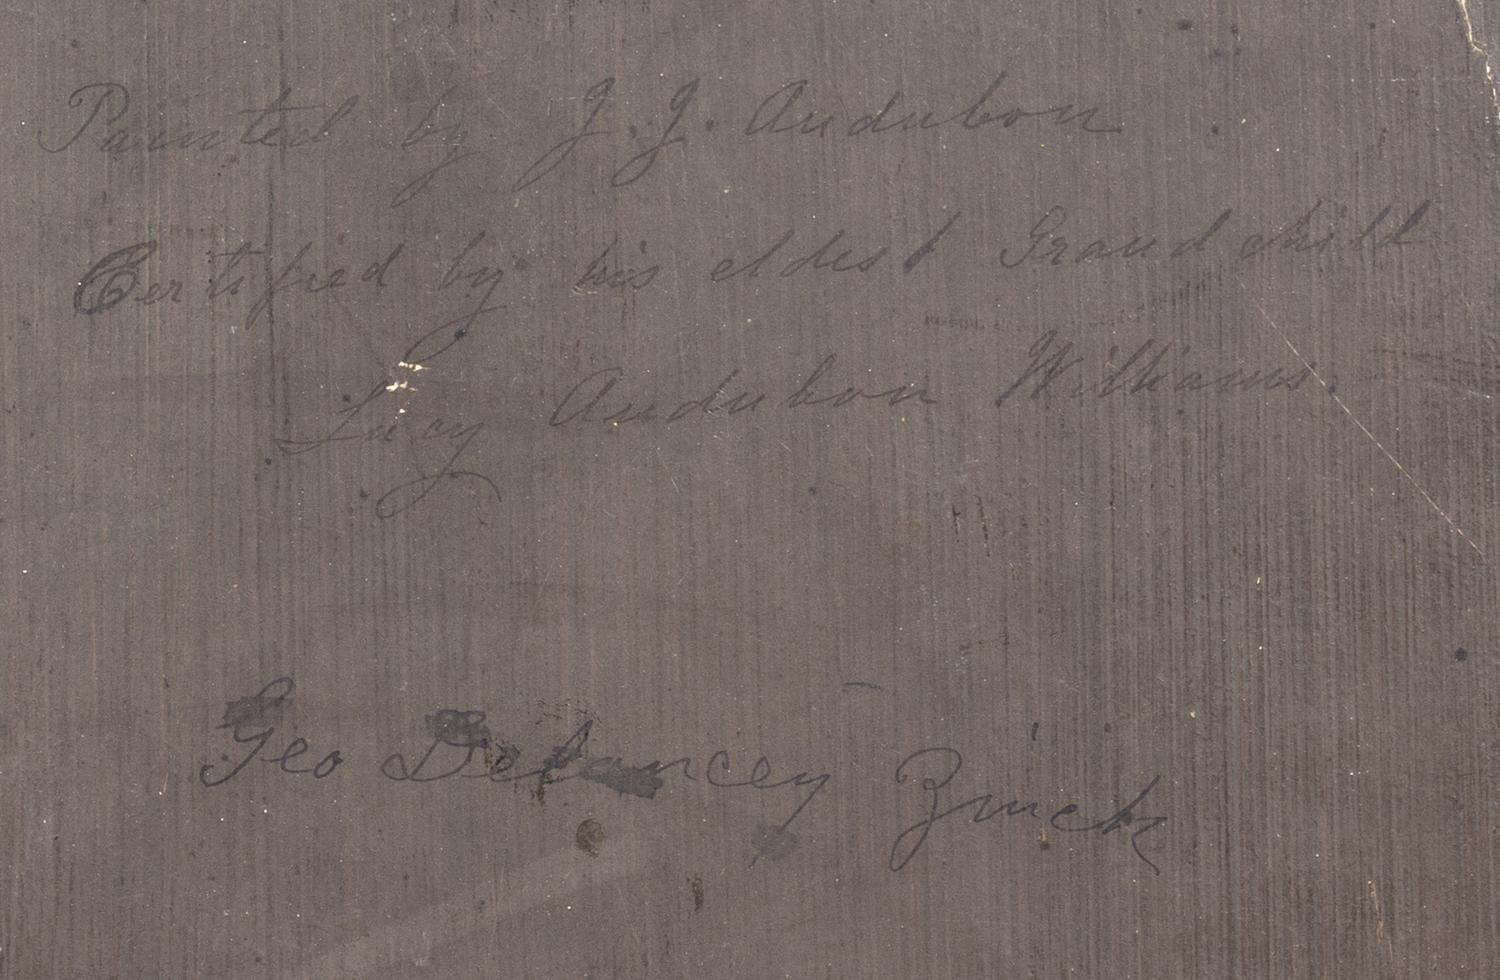 Painted by J. J. Audubon
Certified by his eldest Grand child
Lucy Audubon Williams.
Geo Delancey Zinck